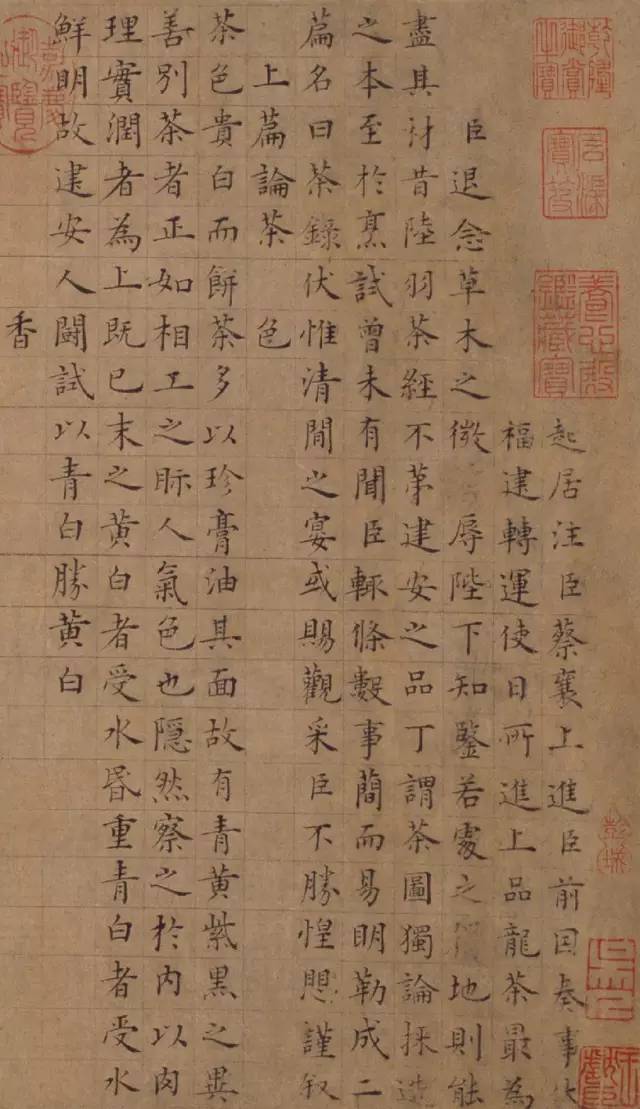 石渠寶笈
養心殿鑑藏寶
起居注臣蔡襄上進臣前因奏事伏
福建轉運使日所進上品龍茶最為
臣退念草木之微辱陛下知鑒若處之地則能
盡其材昔陸羽茶經不第建安之品丁謂茶圖獨論採造
之本至於烹試曾未有聞臣輒條數事簡而易明勒成二
篇名曰茶錄伏惟清閒之宴或賜觀采臣不勝惶懼謹叙
上篇論茶 色
茶色貴白而餅茶多以珍膏油其面故有青黃紫黑之異
善別茶者正如相工之眎人氣色也隱然察之於內以肉
理實潤者為上既已末之黃白者受水昏重青白者受水
鮮明故建安人鬭試以青白勝黃白
香